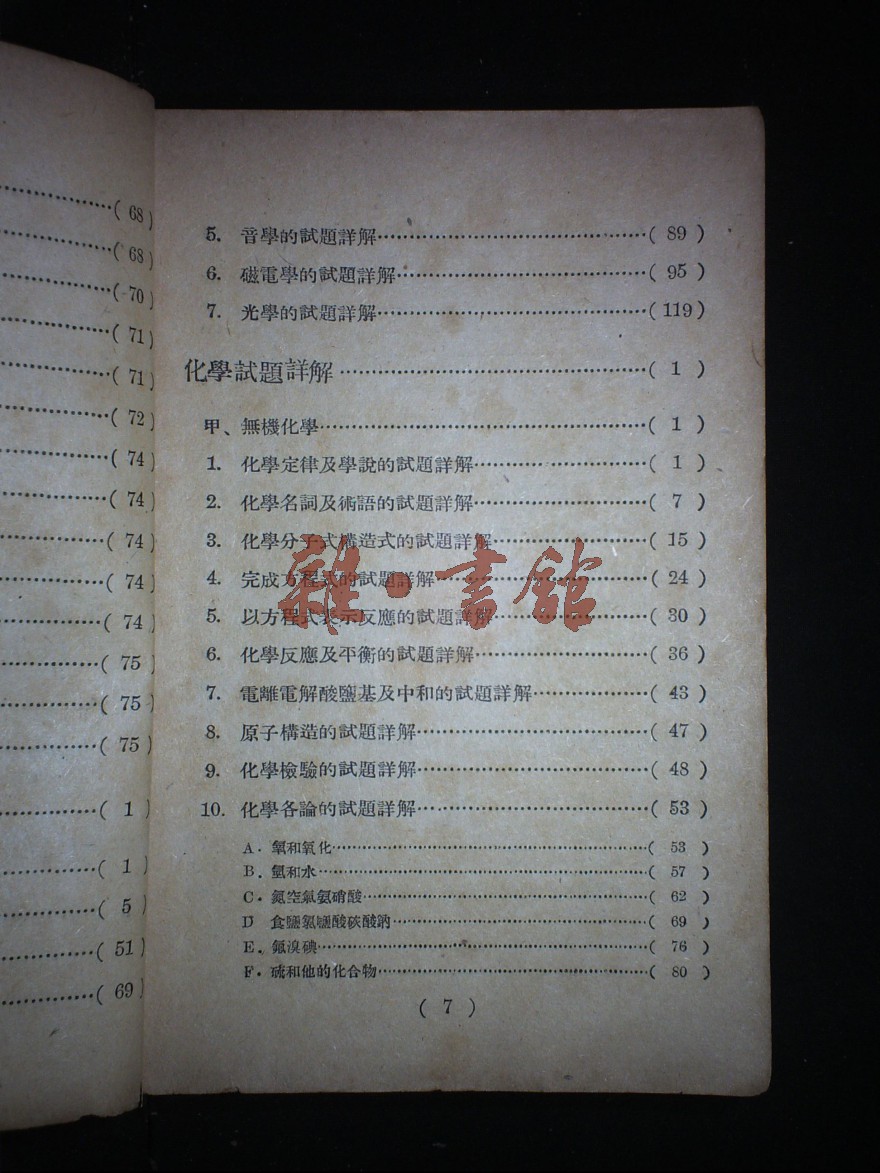 (68)
(68)
(70)
(71)
(71)
(72)
(74)
(74)
(74)
(74)
(74)
(75)
(75)
(75)
(1)
(1)
(5)
(51)
(69)
5. 音學的試題詳解……………………………(89)
6. 磁電學的試題詳解…………………………(95)
7. 光學的試題詳解……………………………(119)
化學試題詳解………………………………(1)
甲、無機化學…………………………………(1)
1. 化學定律及學說的試題詳解…………………(1)
2. 化學名詞及術語的試題詳解…………………(7)
3. 化學分子式構造式的試題詳解………………(15)
4. 完成方程式的試題詳解……………………(24)
5. 以方程式表示反應的試題詳解………………(30)
6. 化學反應及平衡的試題詳解…………………(36)
7. 電離電解酸鹽基及中和的試題詳解……………(43)
8. 原子構造的試題詳解………………………(47)
9. 化學檢驗的試題詳解………………………(48)
10. 化學各論的試題詳解………………………(53)
A. 氧和氧化…………………………………(53)
B. 氫和水……………………………………(57)
C. 氮空氣氨硝酸……………………………(62)
D 食鹽氯鹽酸碳酸鈉…………………………(69)
E. 氟溴碘……………………………………(76)
F. 硫和他的化合物……………………………(80)
(7)
雜·書館